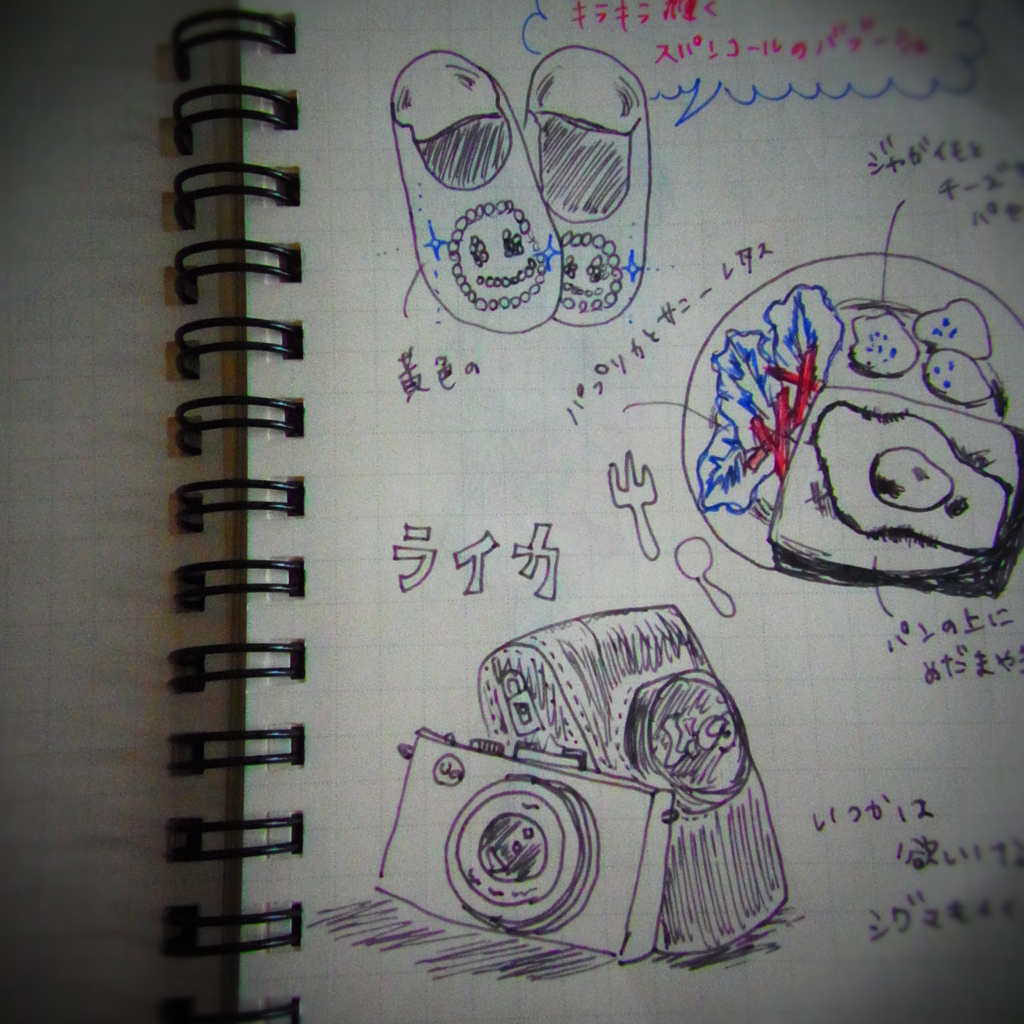 キラキラ輝く
スパンコールのバブーシュ
黄色の
ジャガイモと
チーズ
パセ
パプリカとサニーレタス
パンの上に
めだまやき
ライカ
いつかは
欲しいけど
シグマもイイ